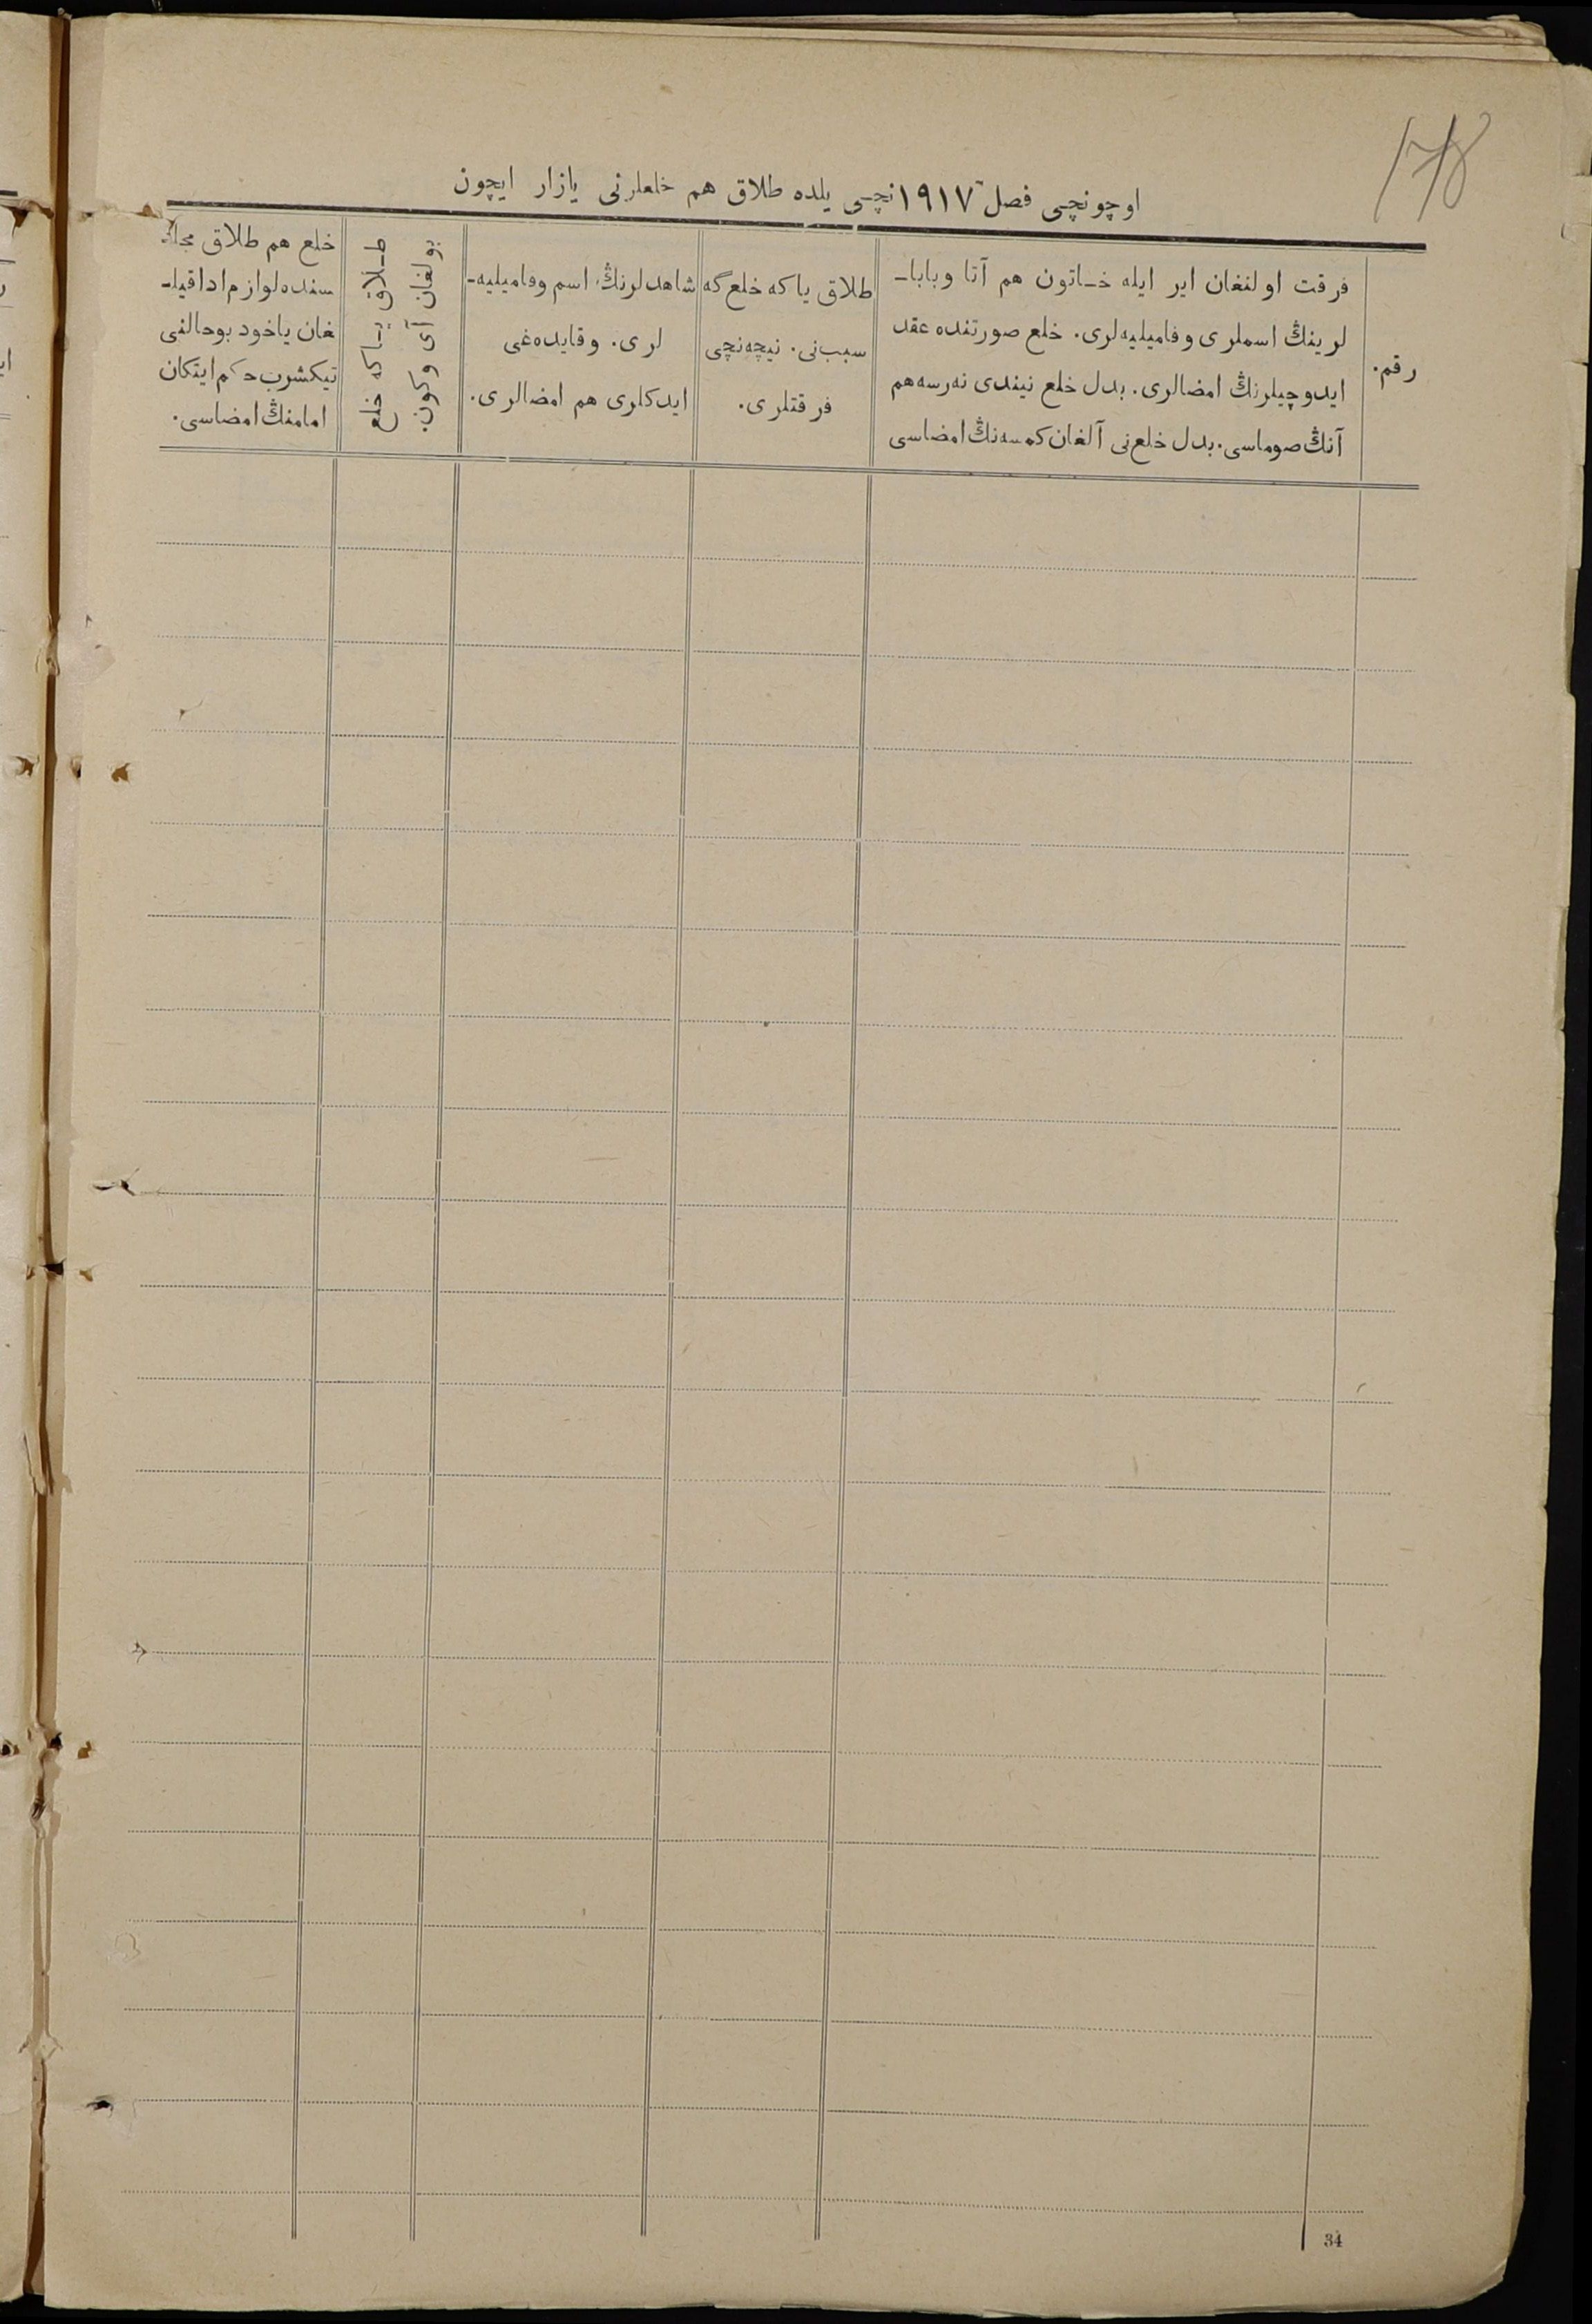 178
اوچونچی فصل ١٩١٧نچی یلده طلاق هم خلعلرنی یازار ایچون
رقم.
فرقت اولنغان ایر ایله خاتون هم آتا وبابا-
لرینڭ اسملری وفامیلیه‌لری. خلع صورتنده عقد
ایدوچیلرنڭ امضالری. بدل خلع نیندی نه‌رسه هم
آنڭ صوماسی. بدل خلع‌نی آلغان کمسه‌نڭ امضاسی
طلاق یاکه خلع گه
سبب‌نی. نیچه‌نچی
فرقتلری.
شاهدلرنڭ اسم وفامیلیه-
لری. وقایده‌غی
ایدکلری هم امضالری.
طلاق یاکه خلع
بولغان آی وکون.
خلع هم طلاق مجلـ
سنده لوازم ادا قیلـ
غان یاخود بوحالنی
تیکشرب حکم ایتکان
امامنڭ امضاسی.
34